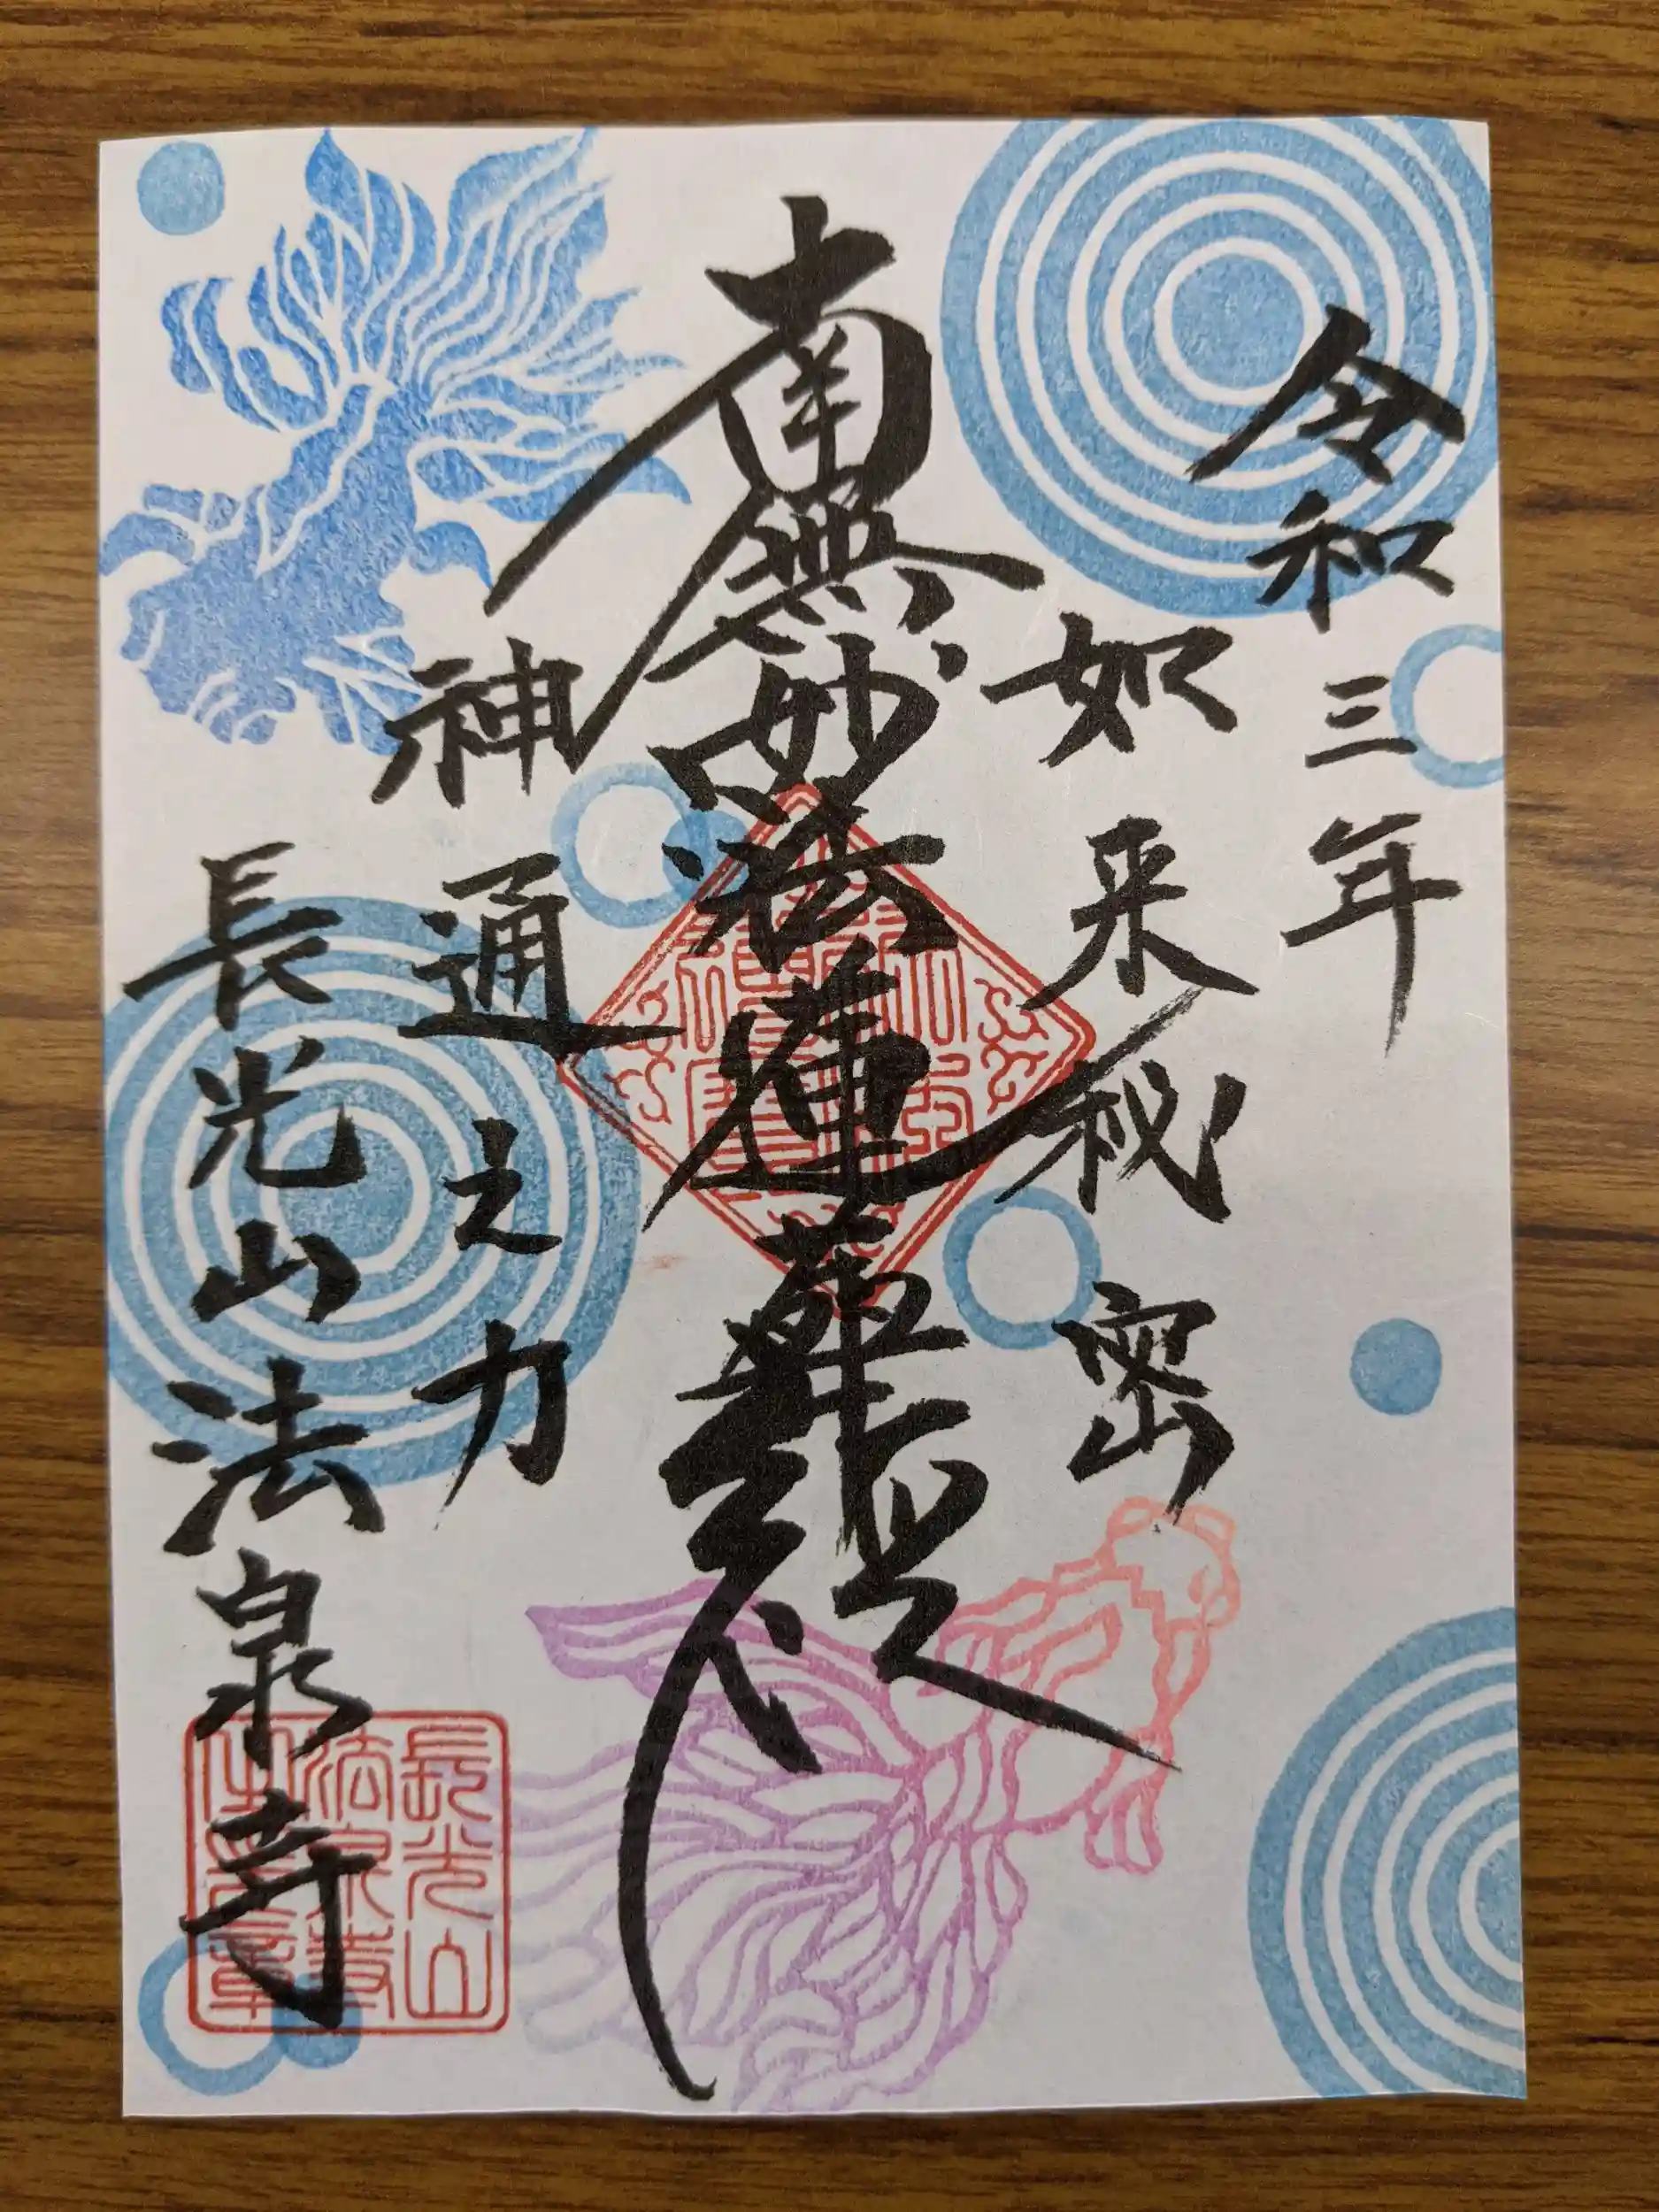 令和三年
如来秘密
南無妙法蓮華経
神通之力
長光山法泉寺
長光山
法泉寺